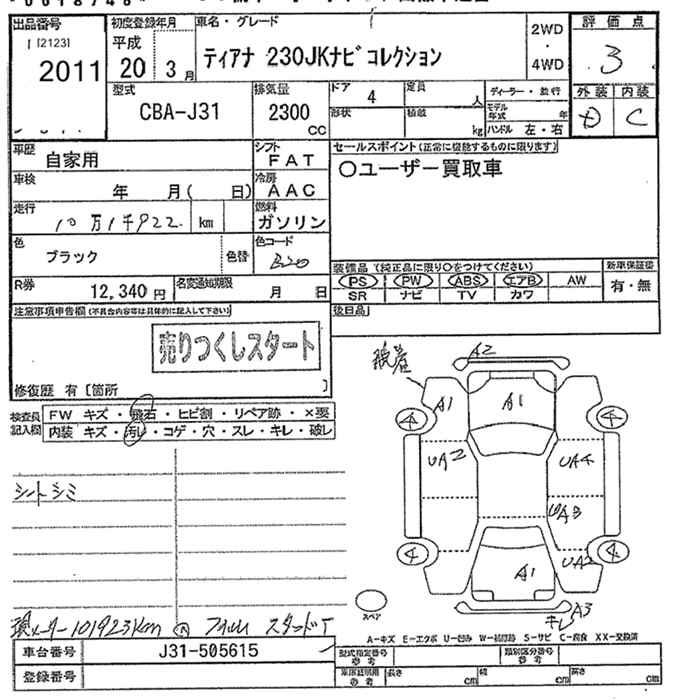 出品番号 初度登録年月 車名・グレード 2WD 評価点
[2123] 平成 ティアナ 230JKナビコレクション ・ 3
2011 20 3月 4WD
型式 CBA-J31 排気量 2300 CC ドア 4 定員 人 ディーラー・並行 外装 内装
形状 積載 kg モデル年式 年 D C
ハンドル 左・右
車歴 自家用 シフト FAT セールスポイント(正常に機能するものに限ります)
車検 年 月( 日) 冷房 AAC 〇ユーザー買取車
走行 10万1千922 km 燃料 ガソリン
色 ブラック 色替 色コード B20
装備品(純正品に限り〇をつけてください) 新車保証書
R券 12,340円 名変通知期限 月 日 PS PW ABS エアB AW 有・無
SR ナビ TV カワ
注意事項申告欄(不具合内容等は具体的に記入して下さい) 後日品
売りつくしスタート
修復歴 有 [箇所 ]
検査員記入欄 FW キズ・飛石・ヒビ割・リペア跡・×要
内装 キズ・汚れ・コゲ・穴・スレ・キレ・破レ
A2
A1 A1
4 4
UA2 UA4
UA3
4 4
A1 UA2
A3
キレ
シートシミ
スペア
現メーター101923km フィルム スタッドT
A-キズ E-エクボ U-凹み W-補修跡 S-サビ C-腐食 XX-交換済
車台番号 J31-505615 型式指定番号 参考 類別区分番号 参考
登録番号 車庫証明用 参考 長さ cm 幅 cm 高さ cm